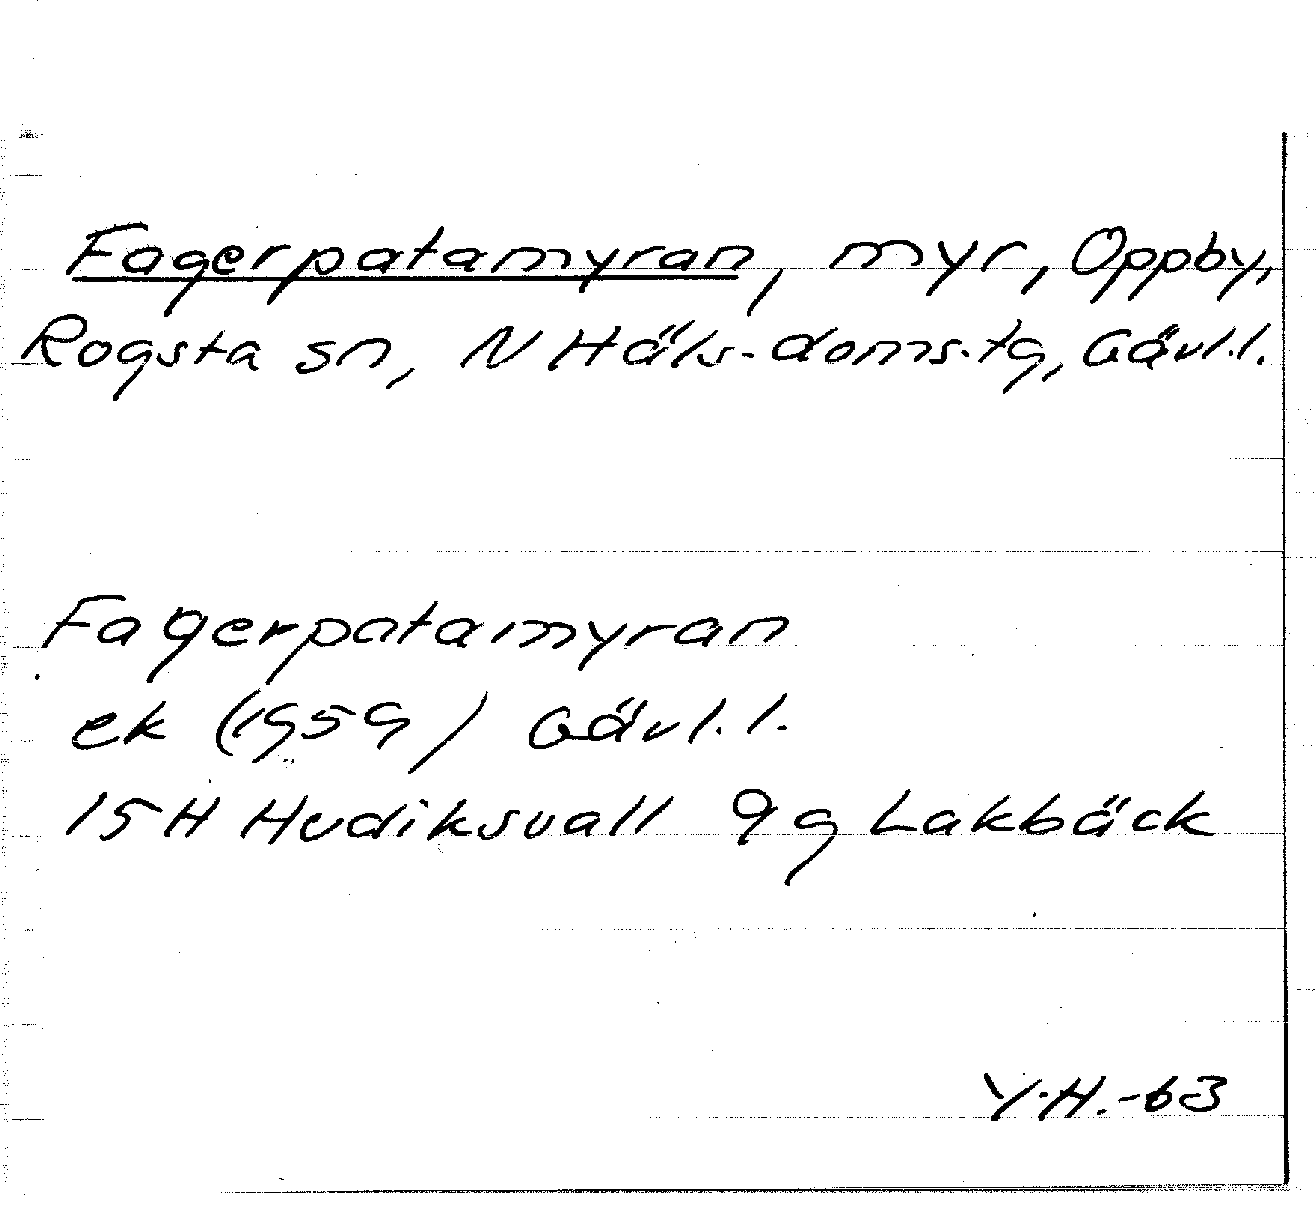 Fagerpatamyran, myr, Oppby,
Rogsta sn, N Häls. doms.tg, Gävl.l.
Fagerpatamyran
ek (1959) Gävl.l.
15H Hudiksvall 9g Lakbäck
Y.H.-63